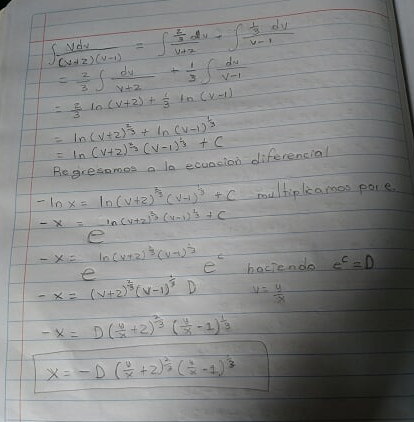 ∫ vdv / (v+2)(v-1) = ∫ 2/3 dv / v+2 + ∫ 1/3 dv / v-1
= 2/3 ∫ dv / v+2 + 1/3 ∫ dv / v-1
= 2/3 ln (v+2) + 1/3 ln (v-1)
= ln (v+2)^2/3 + ln (v-1)^1/3
= ln (v+2)^2/3 (v-1)^1/3 + C
Regresamos a la ecuacion diferencial
-ln x = ln(v+2)^2/3 (v-1)^1/3 + C multiplicamos por e
-x = e^ln(v+2)^2/3 (v-1)^1/3 + C
-x = e^ln(v+2)^2/3 (v-1)^1/3 e^c haciendo e^c = D
-x = (v+2)^2/3 (v-1)^1/3 D v = y/x
-x = D (y/x + 2)^2/3 (y/x - 1)^1/3
x = -D (y/x + 2)^2/3 (y/x - 1)^1/3